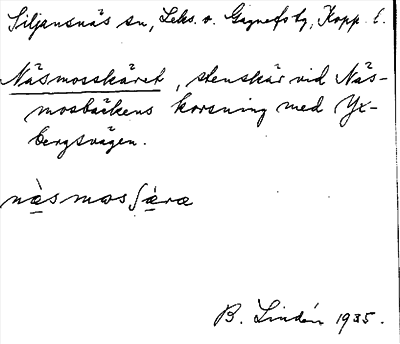 Siljansnäs sn, Leks. o. Gagnefs tg, Kopp. l.
Näsmosskäret, stenskär vid Näs-
mosbäckens korsning med Yx-
bergsvägen.
näsmosʃæra
B. Lindén 1935.